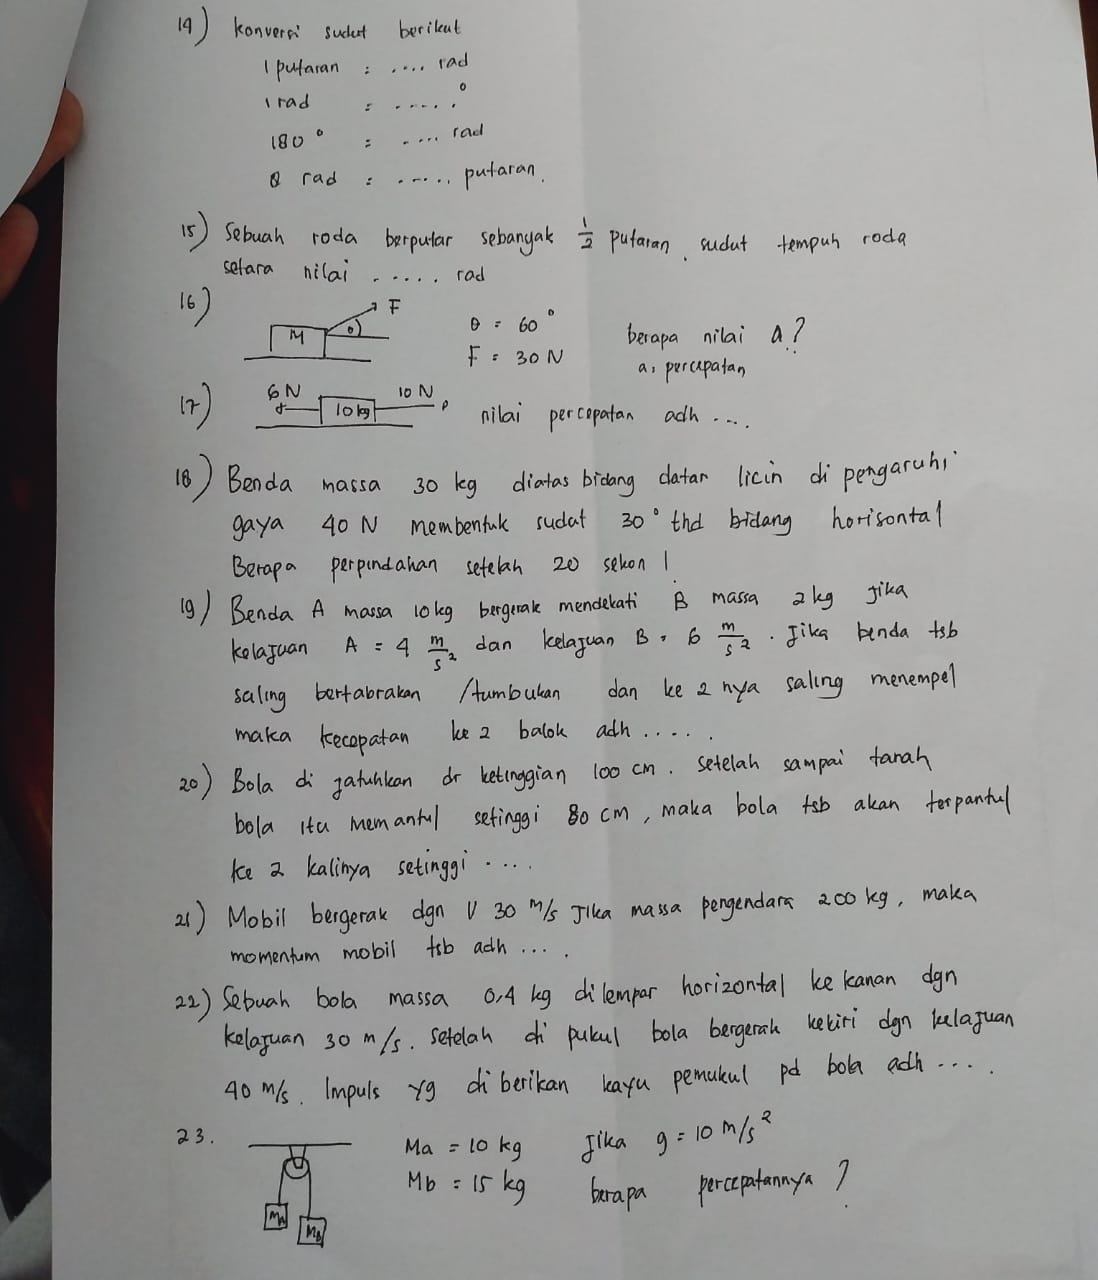 14) konversi sudut berikut
1 putaran : .... rad
1 rad : .....°
180° : .... rad
θ rad : ..... putaran.
15) Sebuah roda berputar sebanyak 1/2 putaran, sudut tempuh roda
setara nilai ..... rad
16) M θ F θ = 60° berapa nilai a?
F = 30 N a, percepatan
17) 6 N 10 kg 10 N nilai percepatan adh ....
18) Benda massa 30 kg diatas bidang datar licin di pengaruhi
gaya 40 N membentuk sudat 30° thd bidang horisontal
Berapa perpindahan setelah 20 sekon !
19) Benda A massa 10 kg bergerak mendekati B massa 2 kg jika
kelajuan A = 4 m/s² dan kelajuan B = 6 m/s². Jika benda tsb
saling bertabrakan /tumbukan dan ke 2 nya saling menempel
maka kecepatan ke 2 balok adh .....
20) Bola di jatuhkan dr ketinggian 100 cm. setelah sampai tanah
bola itu memantul setinggi 80 cm, maka bola tsb akan terpantul
ke 2 kalinya setinggi ....
21) Mobil bergerak dgn V 30 m/s Jika massa pengendara 200 kg, maka
momentum mobil tsb adh ....
22) Sebuah bola massa 0,4 kg di lempar horizontal ke kanan dgn
kelajuan 30 m/s. setelah di pukul bola bergerak kekiri dgn kelajuan
40 m/s. Impuls yg di berikan kayu pemukul pd bola adh ....
23. Ma = 10 kg Jika g = 10 m/s²
Mb = 15 kg berapa percepatannya ?
MA
MB